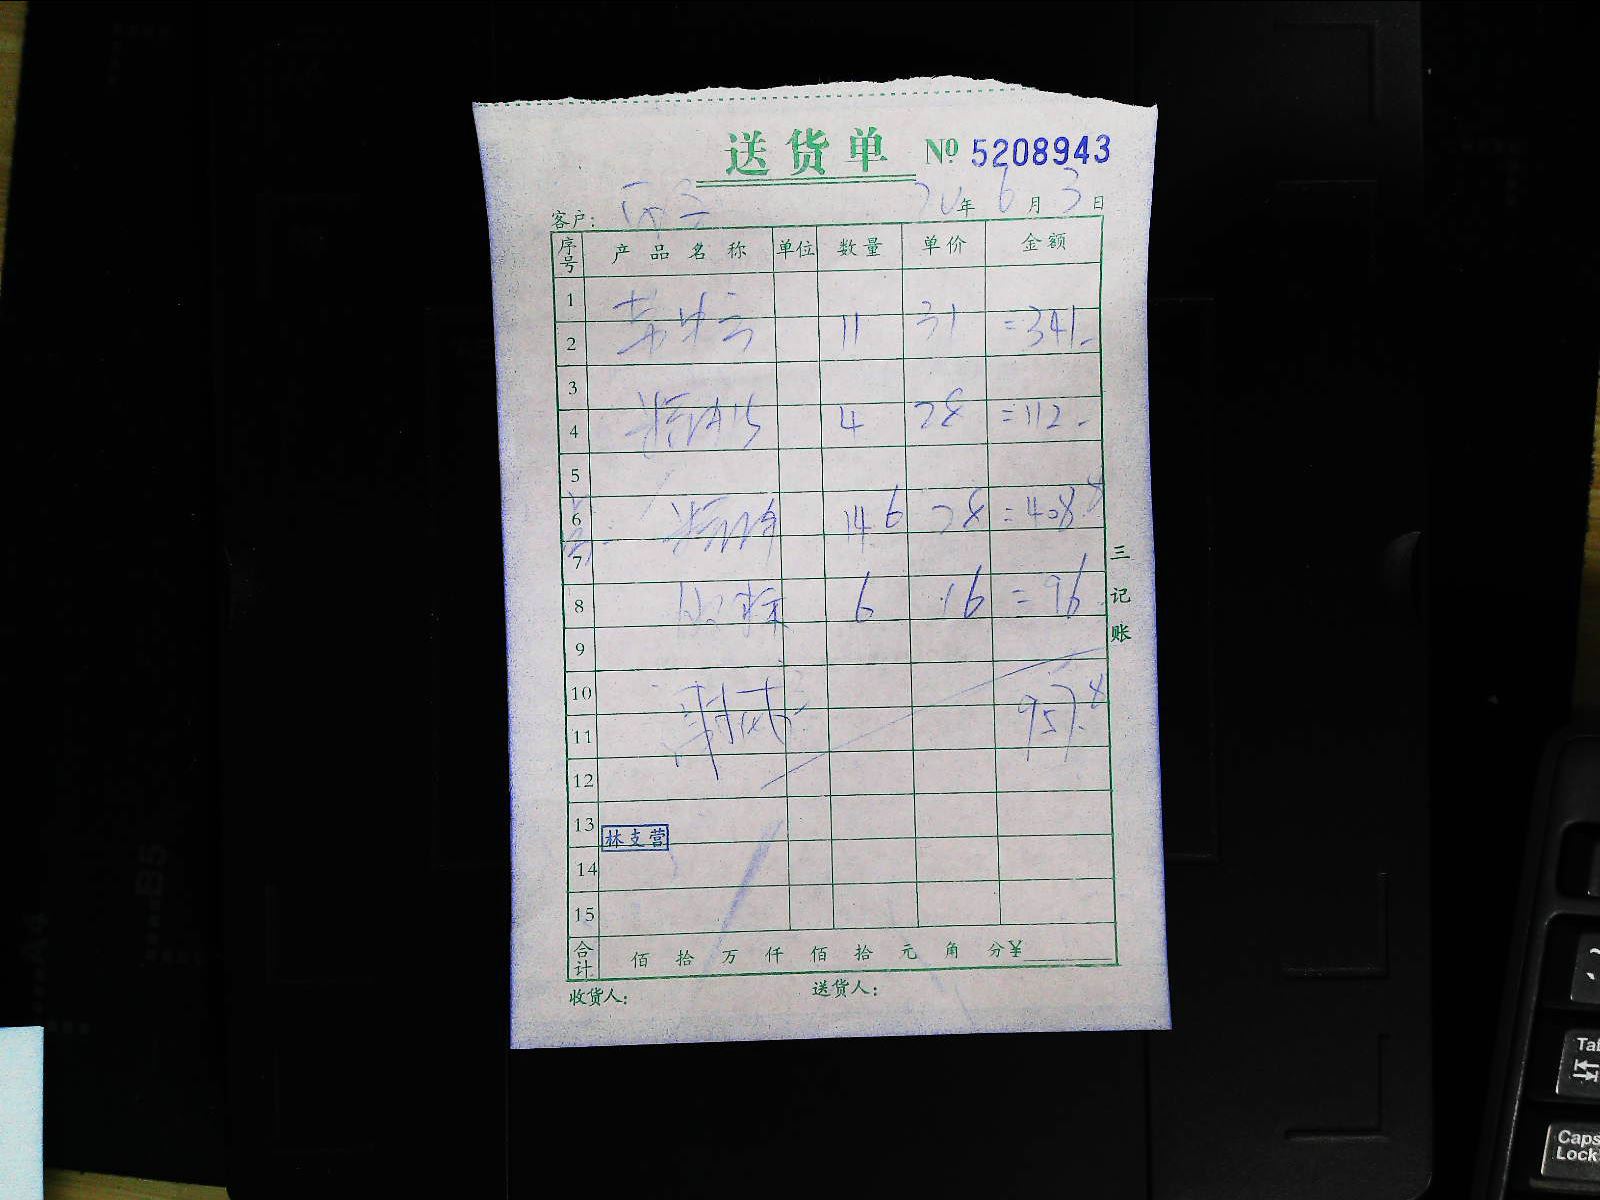 送货单 № 5208943
客户: 20年 6月 3日
序号 产品名称 单位 数量 单价 金额
1
2 11 31 =341-
3
4 4 28 =112-
5
6 14.6 28 =408.8
7
8 6 16 =96
9
10
11 957.8
12
13
林支营
14
15
合计 佰 拾 万 仟 佰 拾 元 角 分¥
收货人: 送货人:
三记账
A4
B5
Tab
Caps Lock